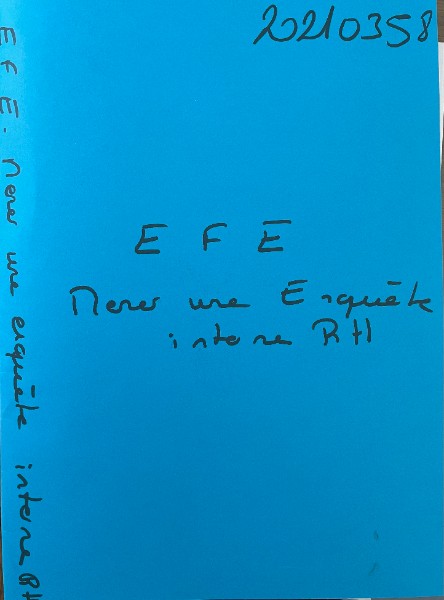 20210358
E F E
Mener une Enquête
interne RH
E F E. Mener une enquête interne RH